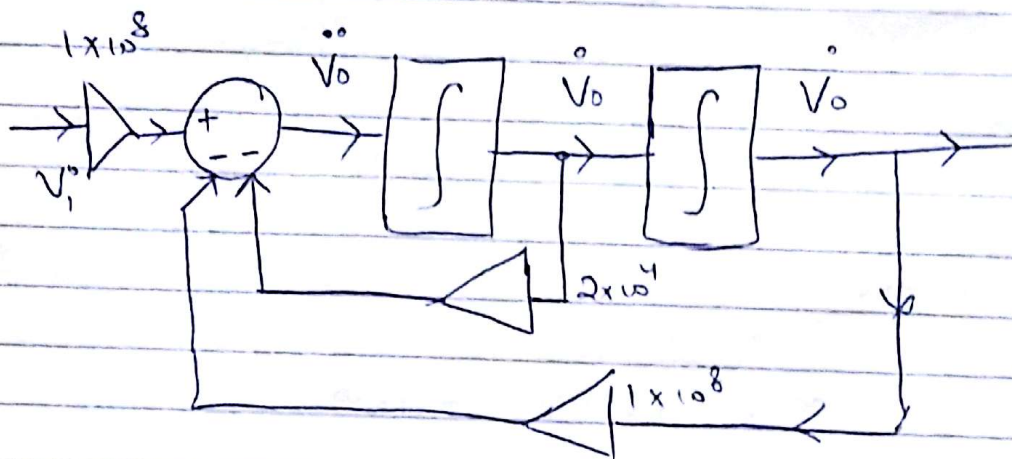 1 × 10⁸
V̈₀ ∫ V̇₀ ∫ V̇₀
+
− −
V̈₁
2×10⁴
1 × 10⁸